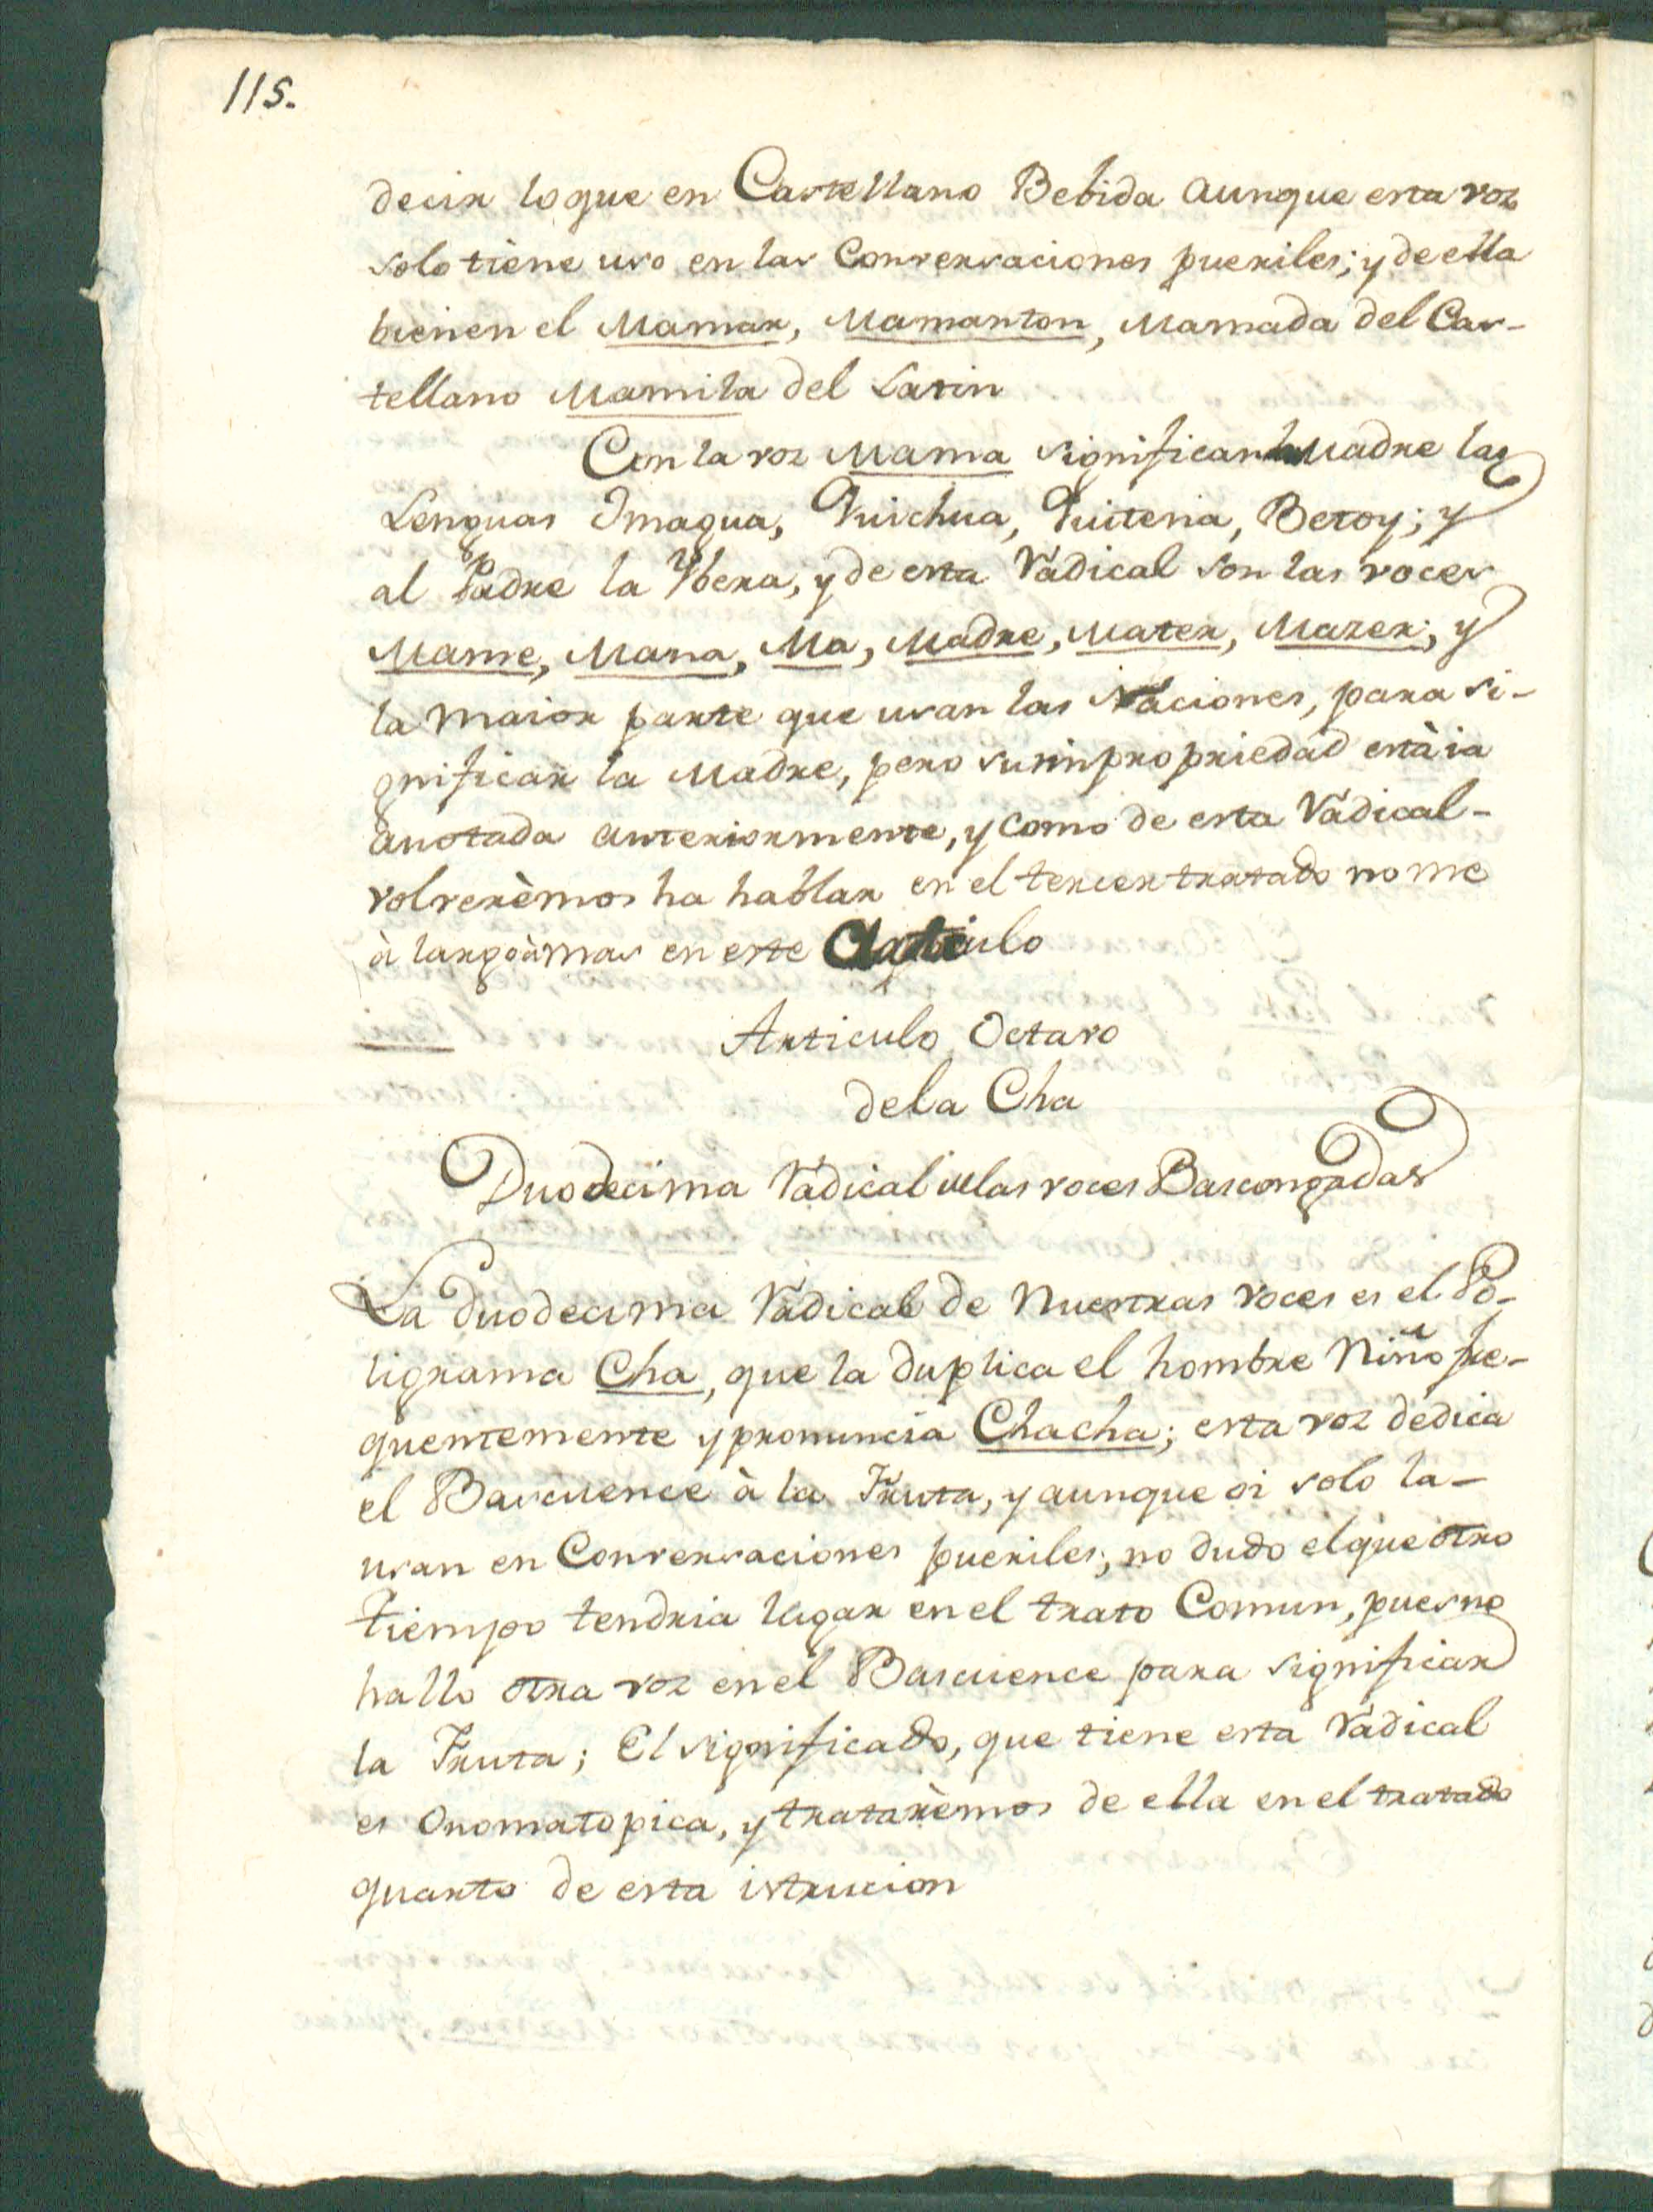 115.
decir loque en Castellano Bebida aunque esta voz
solo tiène uso en las Conversaciones pueriles; y de ella
bienen el Mamar, Mamanton, Mamada del Cas-
tellano Mamila del Latin
Con la voz Mama significan la Madre las
Lenguas Omagua, Quichua, Quitena, Betoy; y
al Padre la Ybera, y de esta Radical son las voces
Mame, Mana, Ma, Madre, Mater, Mazer; y
la maior parte que usan las Naciones, para si-
gnificar la Madre, pero su inpropriedad està ia
anotada anteriormente, y como de esta Radical-
volverèmos ha hablar en el tercer tratado no me
à largo à mas en este Articulo
Articulo Octavo
dela Cha
Duodecima Radical de las voces Bascongadas
La duodecima Radical de Nuestras voces es el Po-
ligrama Cha, que la duplica el hombre Niño fre-
quentemente y pronuncia Chacha; esta voz dedica
el Bascuence à la Fruta, y aunque oi solo la-
usan en Conversaciones pueriles; no dudo el que otro
tiempo tendria lugar en el trato Comun, pues no
hallo otra voz en el Bascuence para significar
la Fruta; El significado, que tiene esta Radical
es Onomatopica, y tratarèmos de ella en el tratado
quarto de esta istrucion